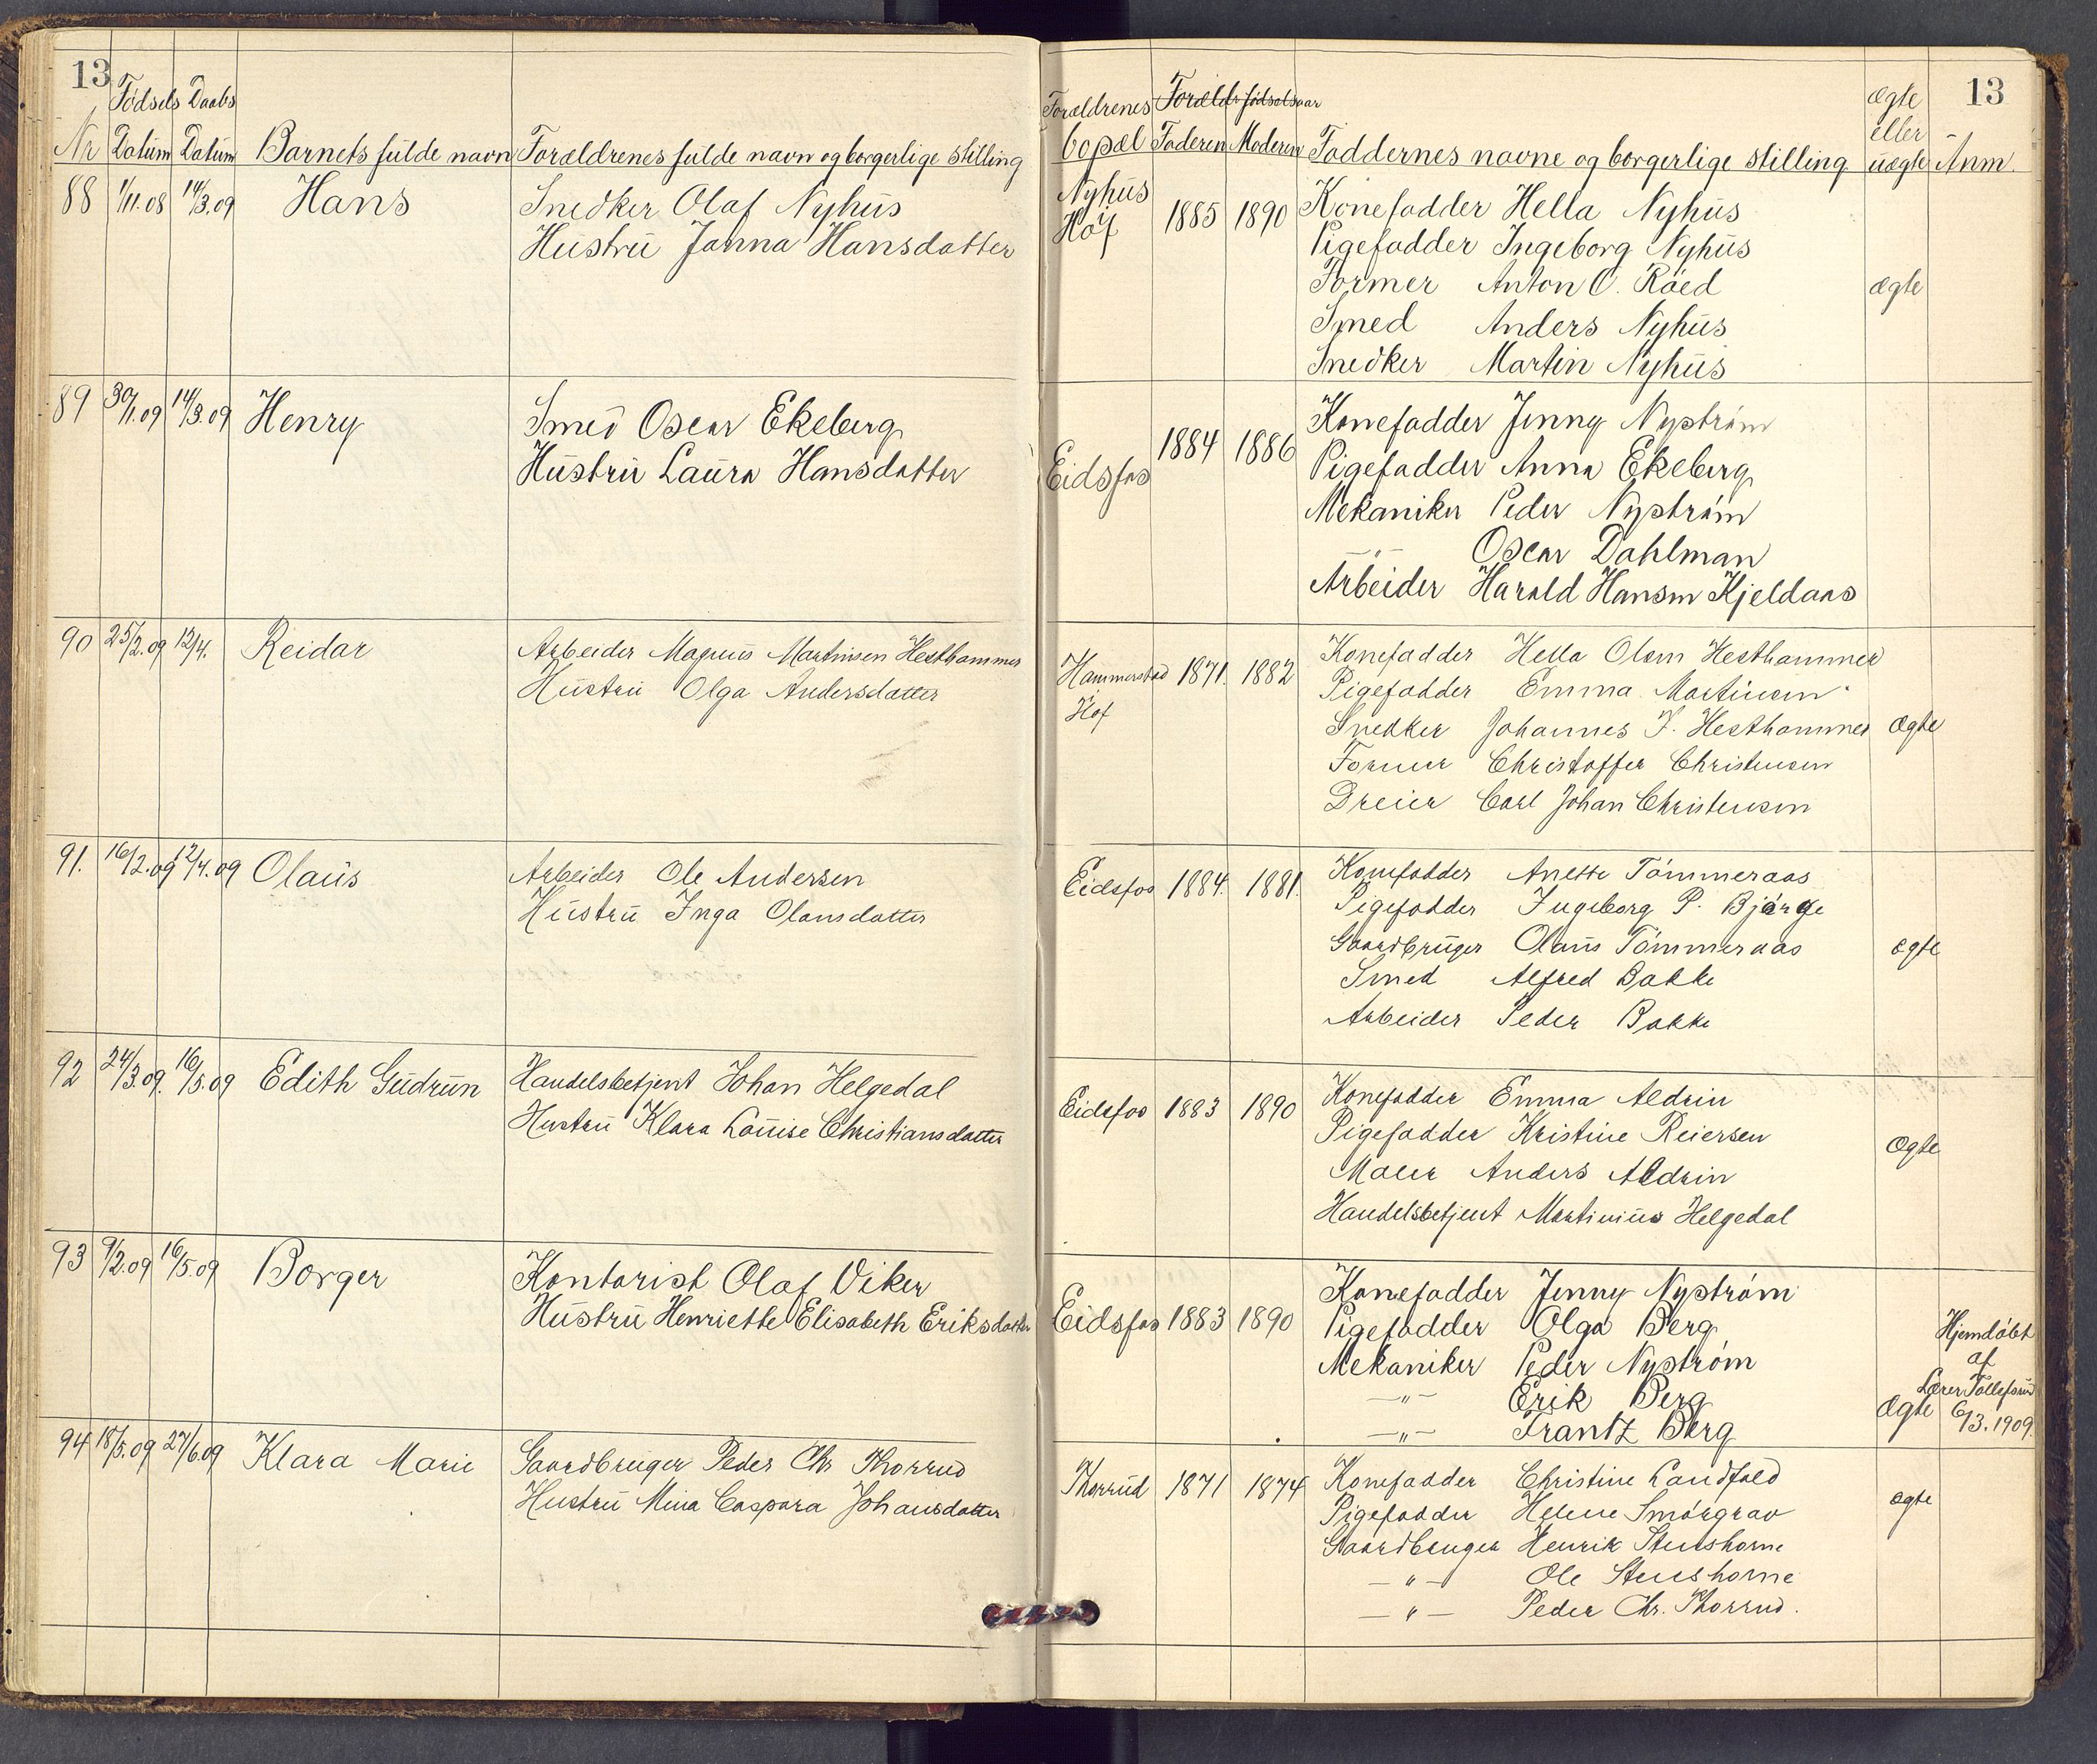 13
Fødsels Daabs
Nr Datum Datum Barnets fulde navn Forældrenes fulde navn og borgerlige stilling
88 1/11.08 14/3.09 Hans Snedker Olaf Nyhus
Hustru Janna Hansdatter
89 30/1.09 14/3.09 Henry Smed Oscar Ekeberg
Hustru Laura Hansdatter
90 25/2.09 12/4. Reidar Arbeider Magnus Martinsen Hesthammer
Hustru Olga Andersdatter
91. 16/2.09 12/4.09 Olaus Arbeider Ole Andersen
Hustru Inga Olausdatter
92 24/3.09. 16/5.09 Edith Gudrun Handelsbetjent Johan Helgedal
Hustru Klara Louise Christiansdatter
93 9/2.09 16/5.09 Borger Kontorist Olaf Viker
Hustru Henriette Elisabeth Eriksdatter
94 18/5.09 27/6.09 Klara Marie Gaardbruger Peder Chr Thorrud
Hustru Mina Caspara Johansdatter
13
Forældrenes Foræld. fødselsaar ægte
eller
bopæl Faderen Moderen Faddernes navne og borgerlige stilling uægte Anm.
Nyhus
i
Hof 1885 1890 Konefadder Hella Nyhus
Pigefadder Ingeborg Nyhus
Former Anton O. Røed ægte
Smed Anders Nyhus
Snedker Martin Nyhus
Eidsfos 1884 1886 Konefadder Jenny Nystrøm
Pigefadder Anna Ekeberg
Mekaniker Peder Nystrøm
—"— Oscar Dahlman
Arbeider Harald Hansen Kjeldaas
Hammerstad 1871. 1882 Konefadder Hella Olsen Hesthammer
Hof Pigefadder Emma Martinsen
Snedker Johannes J. Hesthammer Ægte
Former Christoffer Christensen
Dreier Carl Johan Christensen
Eidsfos 1884. 1881. Konefadder Anette Tømmeraas
Pigefadder Ingeborg P. Bjørge
Gaardbruger Olaus Tømmeraas ægte
Smed Alfred Bakke
Arbeider Peder Bakke
Eidsfos 1883 1890 Konefadder Emma Aldrin
Pigefadder Kristine Reiersen Ægte
Maler Anders Aldrin
Handelsbetjent Martinius Helgedal
Eidsfos 1883 1890 Konefadder Jenny Nystrøm
Pigefadder Olga Berg
Mekaniker Peder Nystrøm
—"— Erik Berg
—"— Frantz Berg
Ægte Hjemdøbt
af
Lærer Tollefsrud
6/3.1909.
Thorrud 1871 1874 Konefadder Christine Landfald
Pigefadder Helene Smørgrav ægte
Gaardbruger Henrik Stenshorne
—"— Ole Stenshorne
—"— Peder Chr. Thorrud.